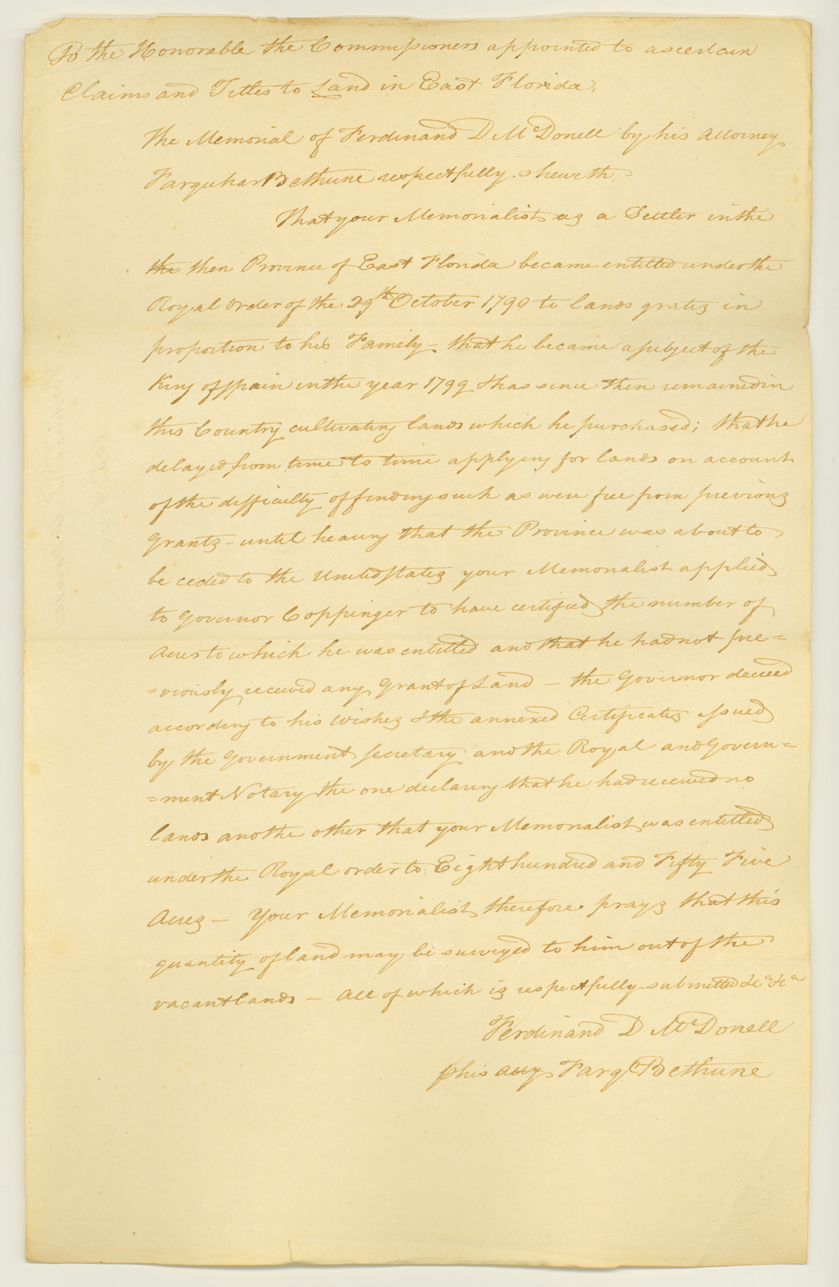 To the Honorable the Commissioners appointed to ascertain
Claims and Titles to Land in East Florida.
The Memorial of Ferdinand D McDonell by his Attorney
Farquhar Bethune respectfully sheweth
That your Memorialist as a Settler in the
the then Province of East Florida became entitled under the
Royal Order of the 29th October 1790 to lands gratis in
proportion to his Family – that he became a subject of the
King of Spain in the year 1799 & has since then remained in
this Country cultivating lands which he purchased; that he
delayed from time to time applying for lands on account
of the difficulty of finding such as were free from previous
grants – until hearing that the Province was about to
be ceded to the United States your Memorialist applied
to Governor Coppinger to have certified the number of
Acres to which he was entitled and that he had not pre=
=viously received any Grant of Land – the Governor decreed
according to his wishes & the annexed Certificates issued
by the Government Secretary and the Royal and Govern=
=ment Notary the one declaring that he had received no
lands and the other that your Memorialist was entitled
under the Royal order to Eight hundred and Fifty Five
Acres – Your Memorialist therefore prays that this
quantity of land may be surveyed to him out of the
vacant lands – All of which is respectfully submitted &ca &ca
Ferdinand D McDonell
p his atty Farqr Bethune